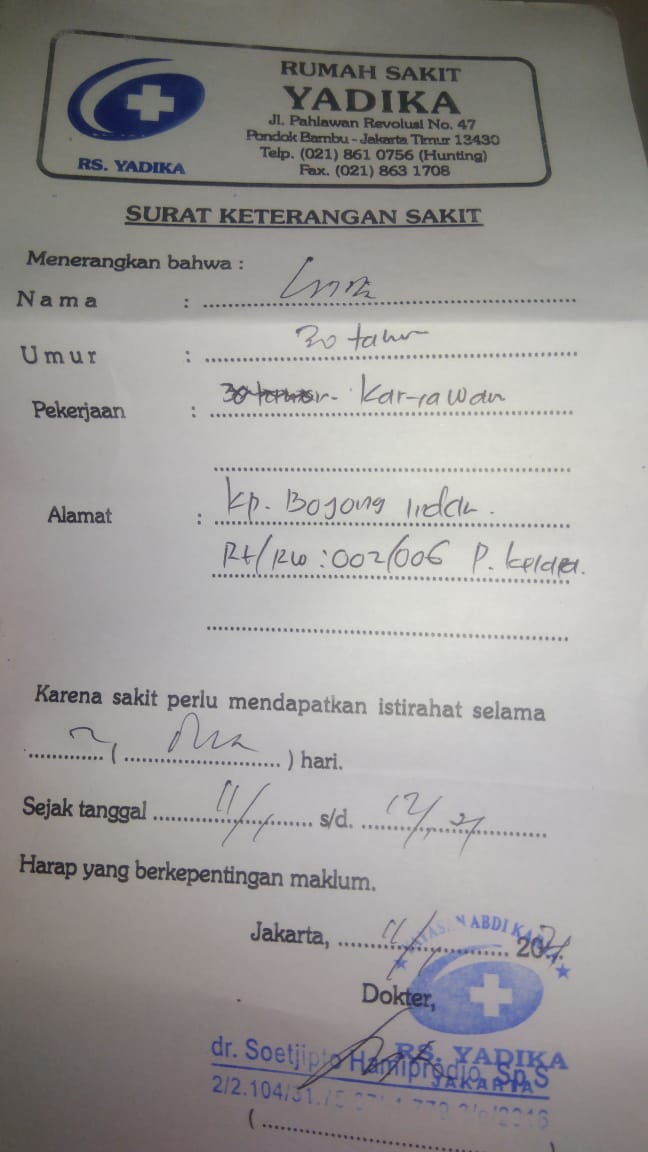 RUMAH SAKIT
YADIKA
Jl. Pahlawan Revolusi No. 47
Pondok Bambu - Jakarta Timur 13430
Telp. (021) 861 0756 (Hunting)
Fax. (021) 863 1708
RS. YADIKA
SURAT KETERANGAN SAKIT
Menerangkan bahwa :
Nama :
Umur : 30 tahun
Pekerjaan : Karyawan
Alamat : Kp. Bojong
Rt/Rw : 002/006 P.
Karena sakit perlu mendapatkan istirahat selama
( Dua ) hari.
Sejak tanggal 11/1 s/d. 12/1 21
Harap yang berkepentingan maklum.
Jakarta, 11/1 2021
Dokter,
YAYASAN ABDI
RS. YADIKA
JAKARTA
dr. Soetjipto Sp.S
2/2.104/31.
(